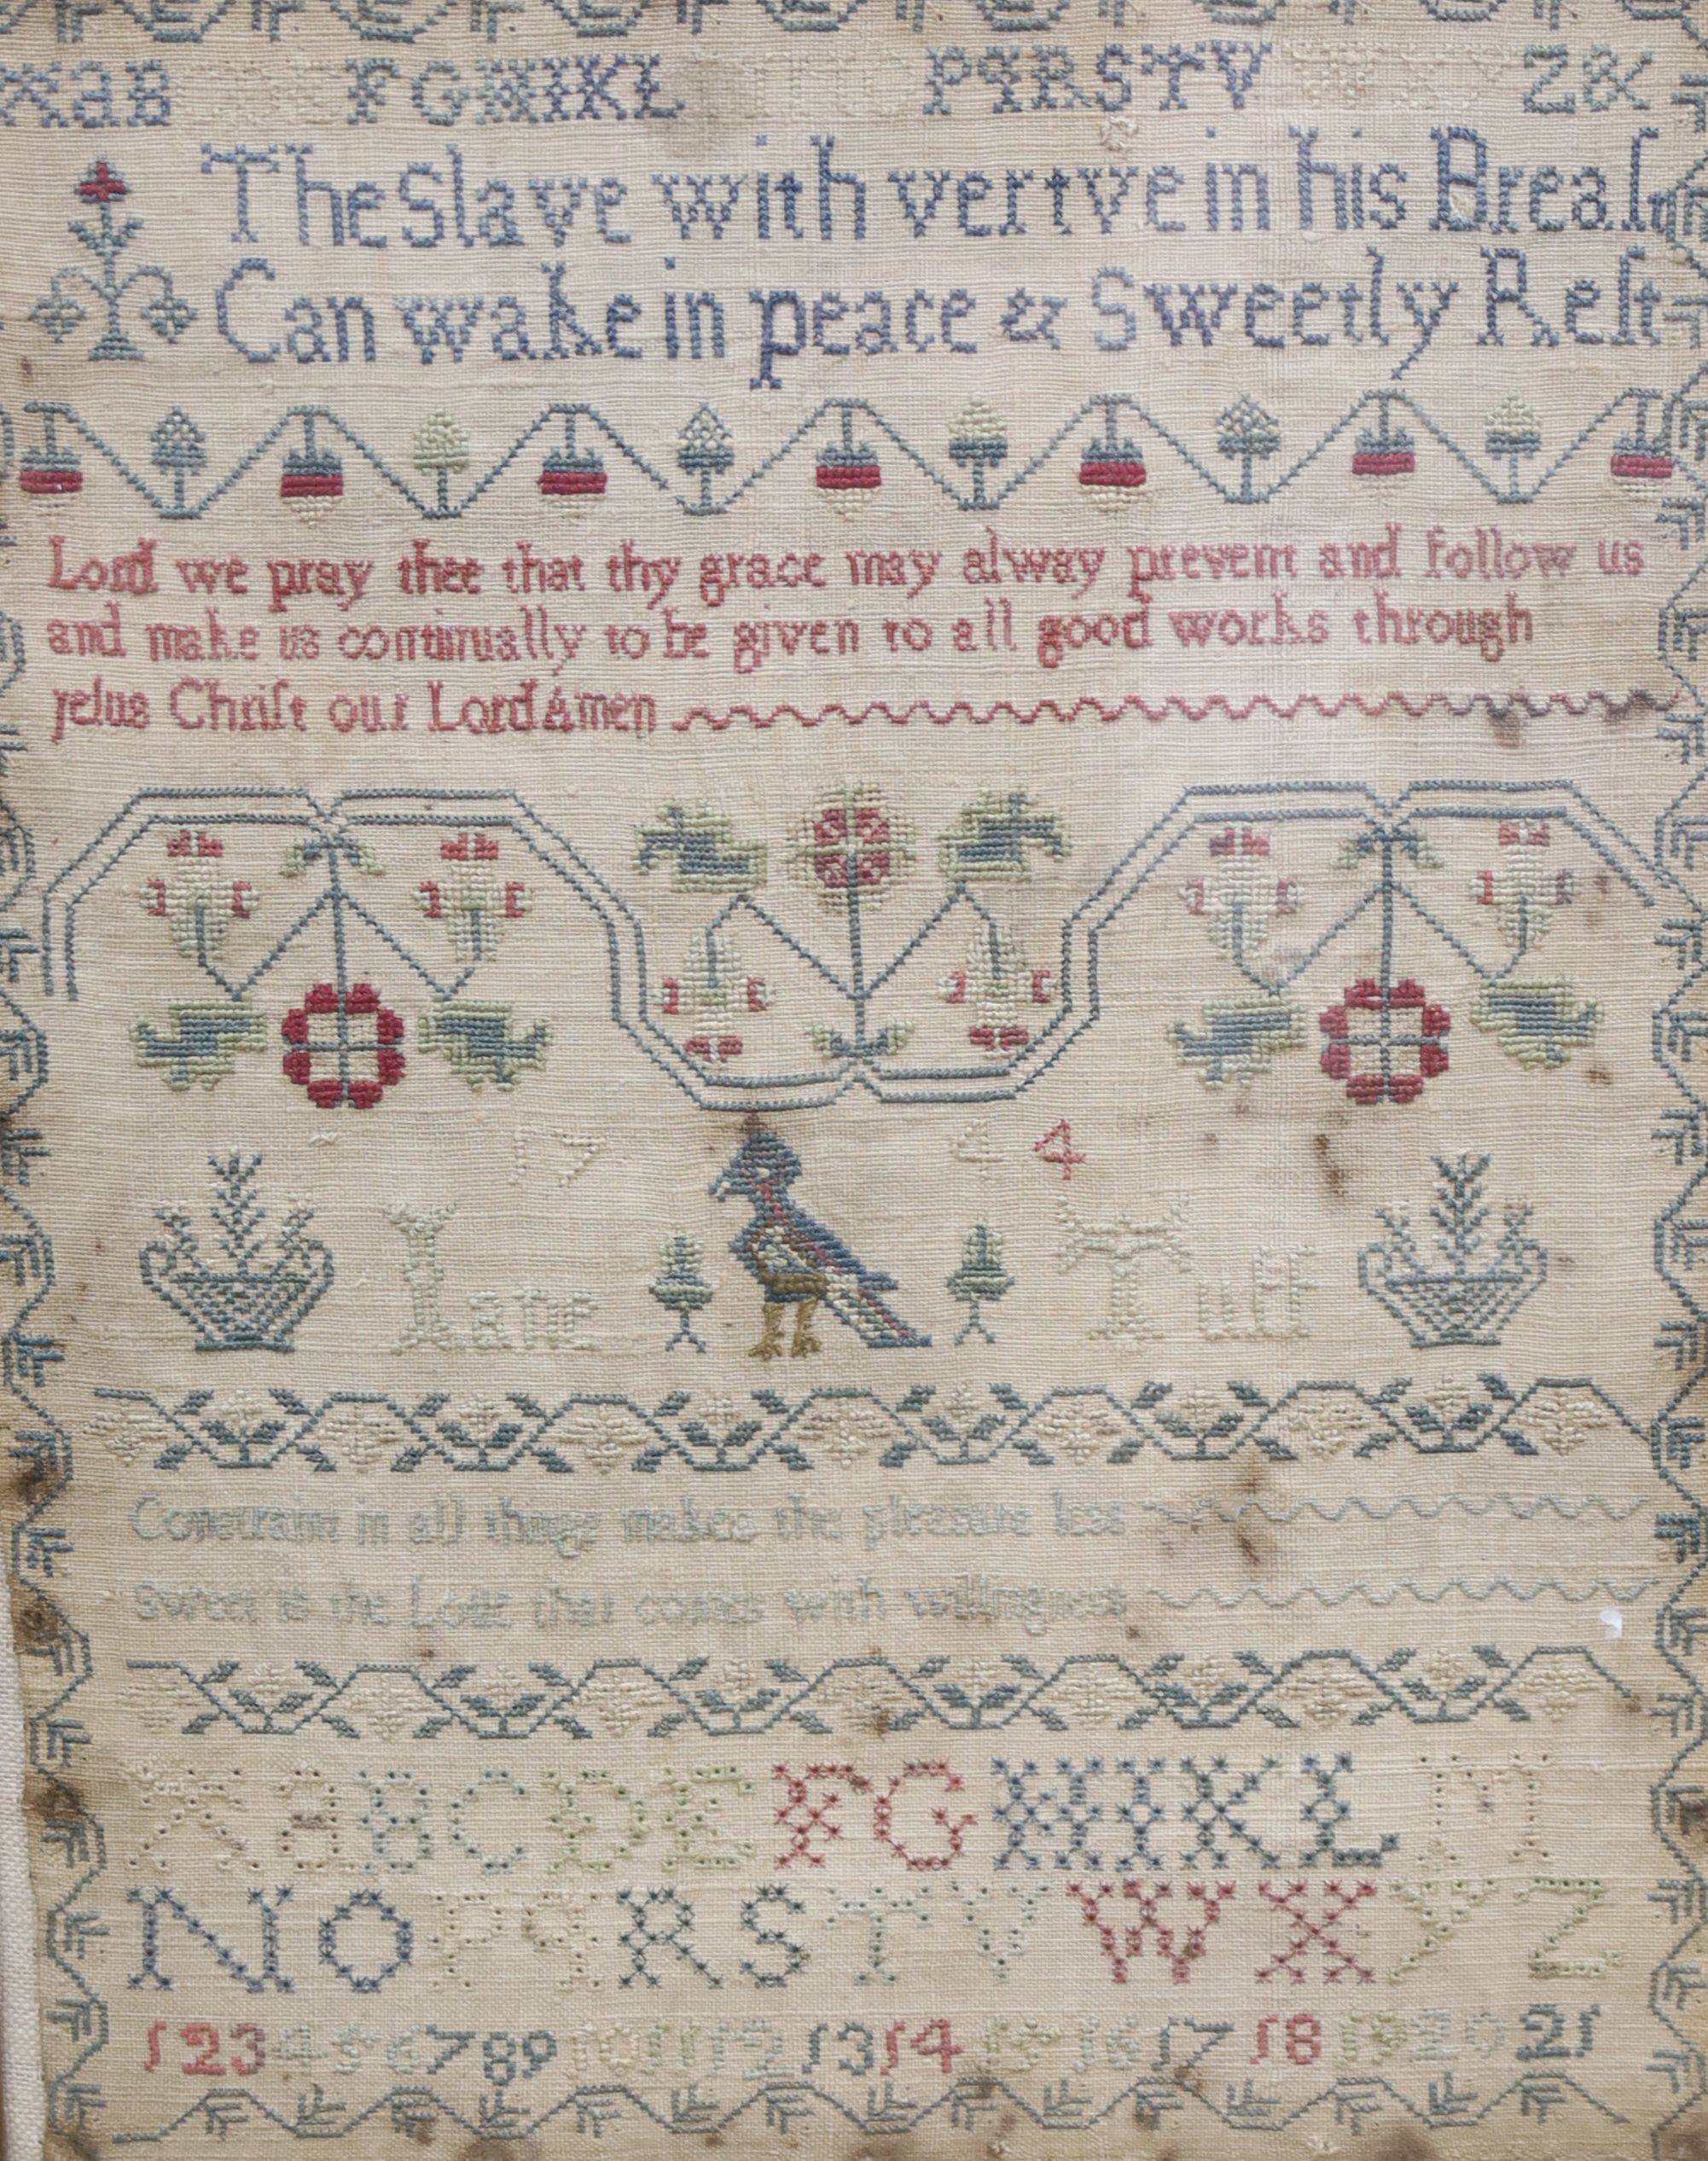 aB FGHIKL PqRSTV Z&
The Slave with vertve in his Breaſt
Can wake in peace & Sweetly Reſt
Lord we pray thee that thy grace may alway prevent and follow us
and make us continually to be given to all good works through
jeſus Chriſt our Lord Amen
17 44
Iane Tutt
Constraint in all things makes the pleasure less
sweet is the Love that comes with willingness
aBCDEFGHIKLM
NOPqRSTVWXYZ
1 2 3 4 5 6 7 8 9 10 11 12 13 14 15 16 17 18 19 20 21